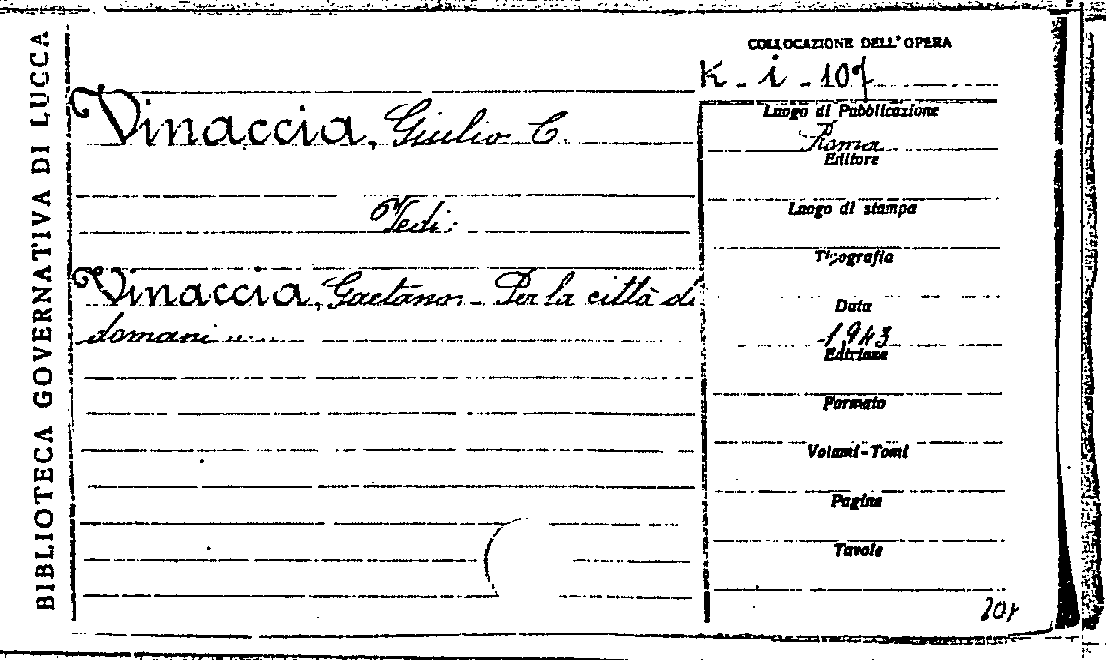 BIBLIOTECA GOVERNATIVA DI LUCCA
COLLOCAZIONE DELL' OPERA
K - i - 107
Vinaccia, Giulio C.
Vedi:
Vinaccia, Gaetano - Per la città di
domani ....
Luogo di Pubblicazione
Roma
Editore
Luogo di stampa
Tipografia
Data
1943
Edizione
Formato
Volumi-Tomi
Pagine
Tavole